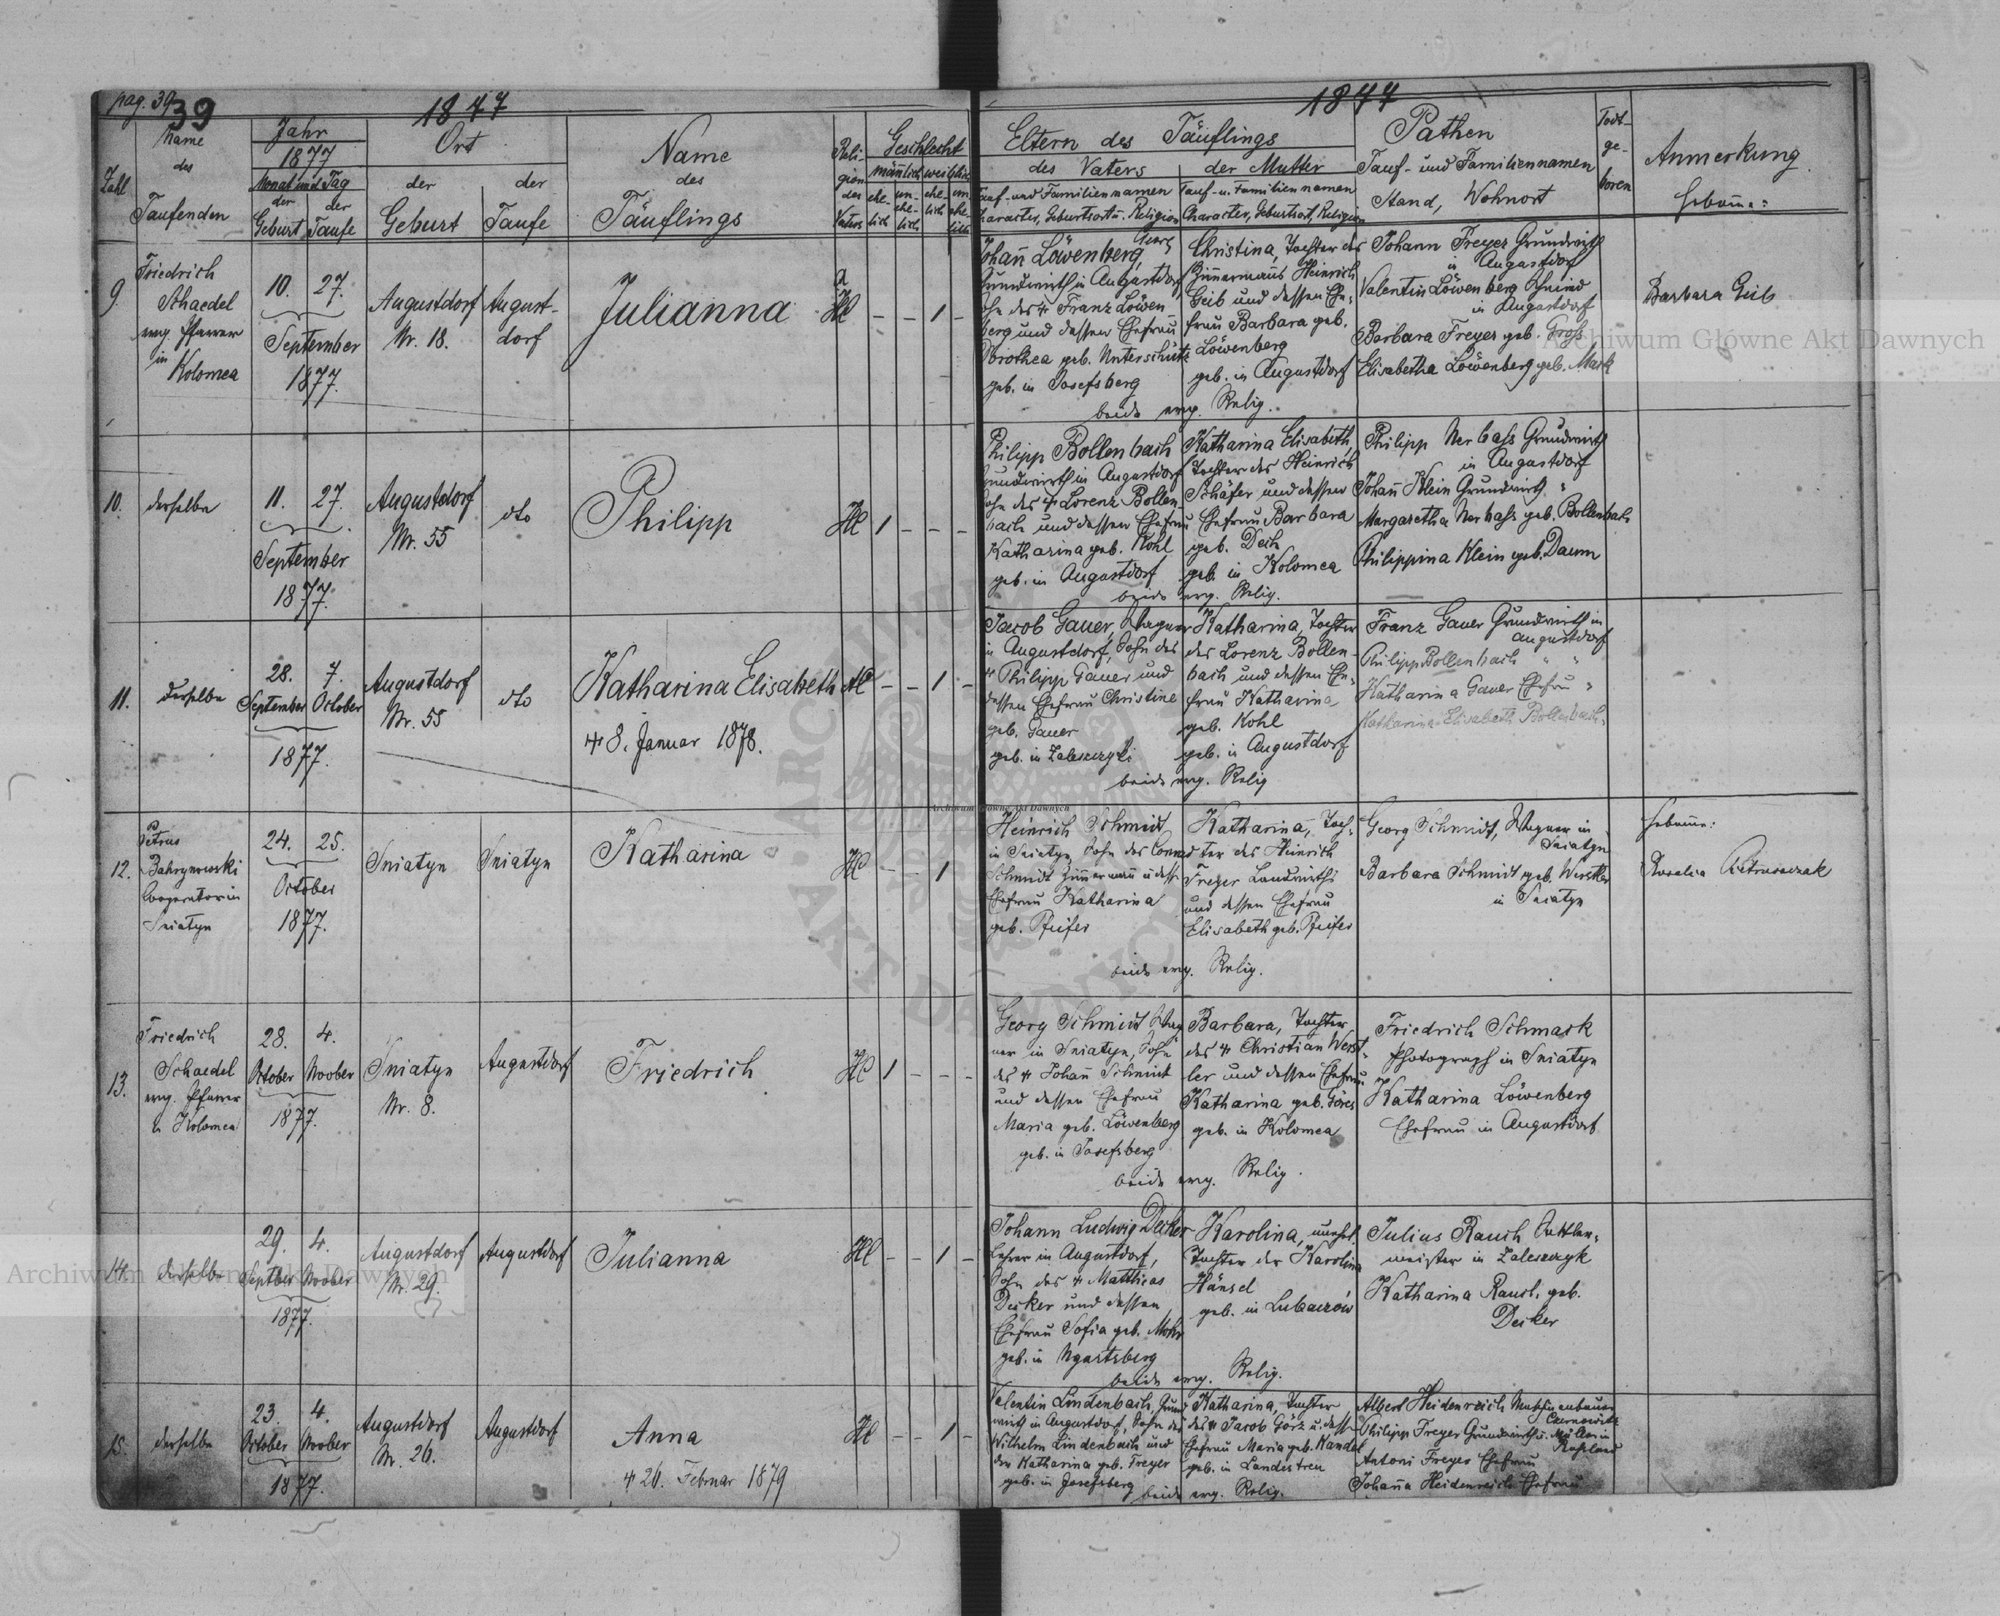 pag. 39
39
1877
1877
Zahl
Name
des
Taufenden
Jahr
1877
Monat und Tag
der
Geburt
der
Taufe
Ort
der
Geburt
der
Taufe
Name
des
Täuflings
Reli-
gion
des
Vaters
Geschlecht
männlich
weiblich
ehe-
lich
un-
ehe-
lich
ehe-
lich
un-
ehe-
lich
Eltern des Täuflings
des Vaters
Tauf- und Familiennamen
Character, Geburtsort u. Religion
der Mutter
Tauf- u. Familiennamen
Character, Geburtsort, Religion
Pathen
Tauf- und Familiennamen
Stand, Wohnort
Todt-
ge-
boren
Anmerkung
Hebam̄e:
9.
Friedrich
Schaedel
evg. Pfarrer
in
Kolomea
10. 27.
September
1877.
Augustdorf
Nr. 18.
August-
dorf
Julianna
1
Johan̄ Georg Löwenberg,
Grundwirth in Augustdorf
Sohn des Franz Löwen-
berg und dessen Ehefrau
Dorothea geb. Unterschütz
geb. in Josefsberg
Christina, Tochter des
Zim̄ermanns Heinrich
Geib und dessen Ehe-
frau Barbara geb.
Löwenberg
geb. in Augustdorf
beide evg. Relig.
Johann Freyer Grundwirth
in Augustdorf
Valentin Löwenberg Schmied
in Augustdorf
Barbara Freyer geb. Groß
Elisabetha Löwenberg geb. Mark
Barbara Geib
10.
derselbe
11. 27.
September
1877.
Augustdorf
Nr. 55
dto
Philipp
HC 1
Philipp Bollenbach
Grundwirth in Augustdorf
Sohn des Lorenz Bollen-
bach und dessen Ehefrau
Katharina geb. Kohl
geb. in Augustdorf
Katharina Elisabeth,
Tochter des Heinrich
Schäfer und dessen
Ehefrau Barbara
geb. Dech
geb. in Kolomea
beide evg. Relig.
Philipp Nerbaß Grundwirth
in Augustdorf
Johan̄ Klein Grundwirth "
Margaretha Nerbaß geb. Bollenbach
Philippina Klein geb. Daum
11.
derselbe
28. 7.
September October
1877.
Augustdorf
Nr. 55
dto
Katharina Elisabeth
8. Januar 1878.
HC 1
Jacob Gauer, Wagner
in Augustdorf, Sohn des
Philipp Gauer und
dessen Ehefrau Christine
geb. Gauer
geb. in Zaleszczyki
Katharina, Tochter
des Lorenz Bollen-
bach und dessen Ehe-
frau Katharina
geb. Kohl
geb. in Augustdorf
beide evg. Relig
Franz Gauer Grundwirth in
Augustdorf
Philipp Bollenbach " "
Katharina Gauer Ehefrau "
Katharina Elisabeth Bollenbach
12.
Petrus
Cooperator in
Sniatyn
24. 25.
October
1877.
Sniatyn
Sniatyn
Katharina
HC 1
Heinrich Schmidt
in Sniatyn, Sohn des Conrad
Schmidt Zim̄ermañ u. dess.
Ehefrau Katharina
geb. Pfeifer
Katharina, Toch-
ter des Heinrich
Freyer Landwirths
und dessen Ehefrau
Elisabeth geb. Pfeifer
beide evg. Relig.
Georg Schmidt, Wagner in
Sniatyn
Barbara Schmidt geb. Werstler
in Sniatyn
Hebam̄e:
Rosalia
13.
Friedrich
Schaedel
evg. Pfarrer
in Kolomea
28. 4.
October Noober
1877.
Sniatyn
Nr. 8.
Augustdorf
Friedrich
HC 1
Georg Schmidt Wag-
ner in Sniatyn, Sohn
des Johan̄ Schmidt
und dessen Ehefrau
Maria geb. Löwenberg
geb. in Josefsberg
Barbara, Tochter
des Christian Werst-
ler und dessen Ehefrau
Katharina geb. Göres
geb. in Kolomea
beide evg. Relig.
Friedrich Schmask
Photograph in Sniatyn
Katharina Löwenberg
Ehefrau in Augustdorf
14.
derselbe
29. 4.
Septber Noober
1877.
Augustdorf
Nr. 29.
Augustdorf
Julianna
HC 1
Johann Ludwig Decker
Lehrer in Augustdorf,
Sohn des Matthias
Decker und dessen
Ehefrau Sofia geb. Mohr
geb. in Ugartsberg
Karolina, unehel.
Tochter der Karolina
Hänsel
geb. in Lubaczow
beide evg. Relig.
Julius Rauch Sattler-
meister in Zaleszczyk
Katharina Rauch, geb.
Decker
15.
derselbe
23. 4.
October Noober
1877.
Augustdorf
Nr. 26.
Augustdorf
Anna
26. Februar 1879
HC 1
Valentin Lindenbach, Grund-
wirth in Augustdorf, Sohn des
Wilhelm Lindenbach und
der Katharina geb. Freyer
geb. in Josefsberg
Katharina, Tochter
des Jacob Görz u. dess.
Ehefrau Maria geb. Kandel
geb. in Landestreu
beide evg. Relig.
Albert Heidenreich Maschinenbauer
Czernowitz
Philipp Freyer Grundwirth
Antoni Freyer Ehefrau
Johan̄a Heidenreich Ehefrau
Archiwum Główne Akt Dawnych
Archiwum Główne Akt Dawnych
Archiwum Główne Akt Dawnych